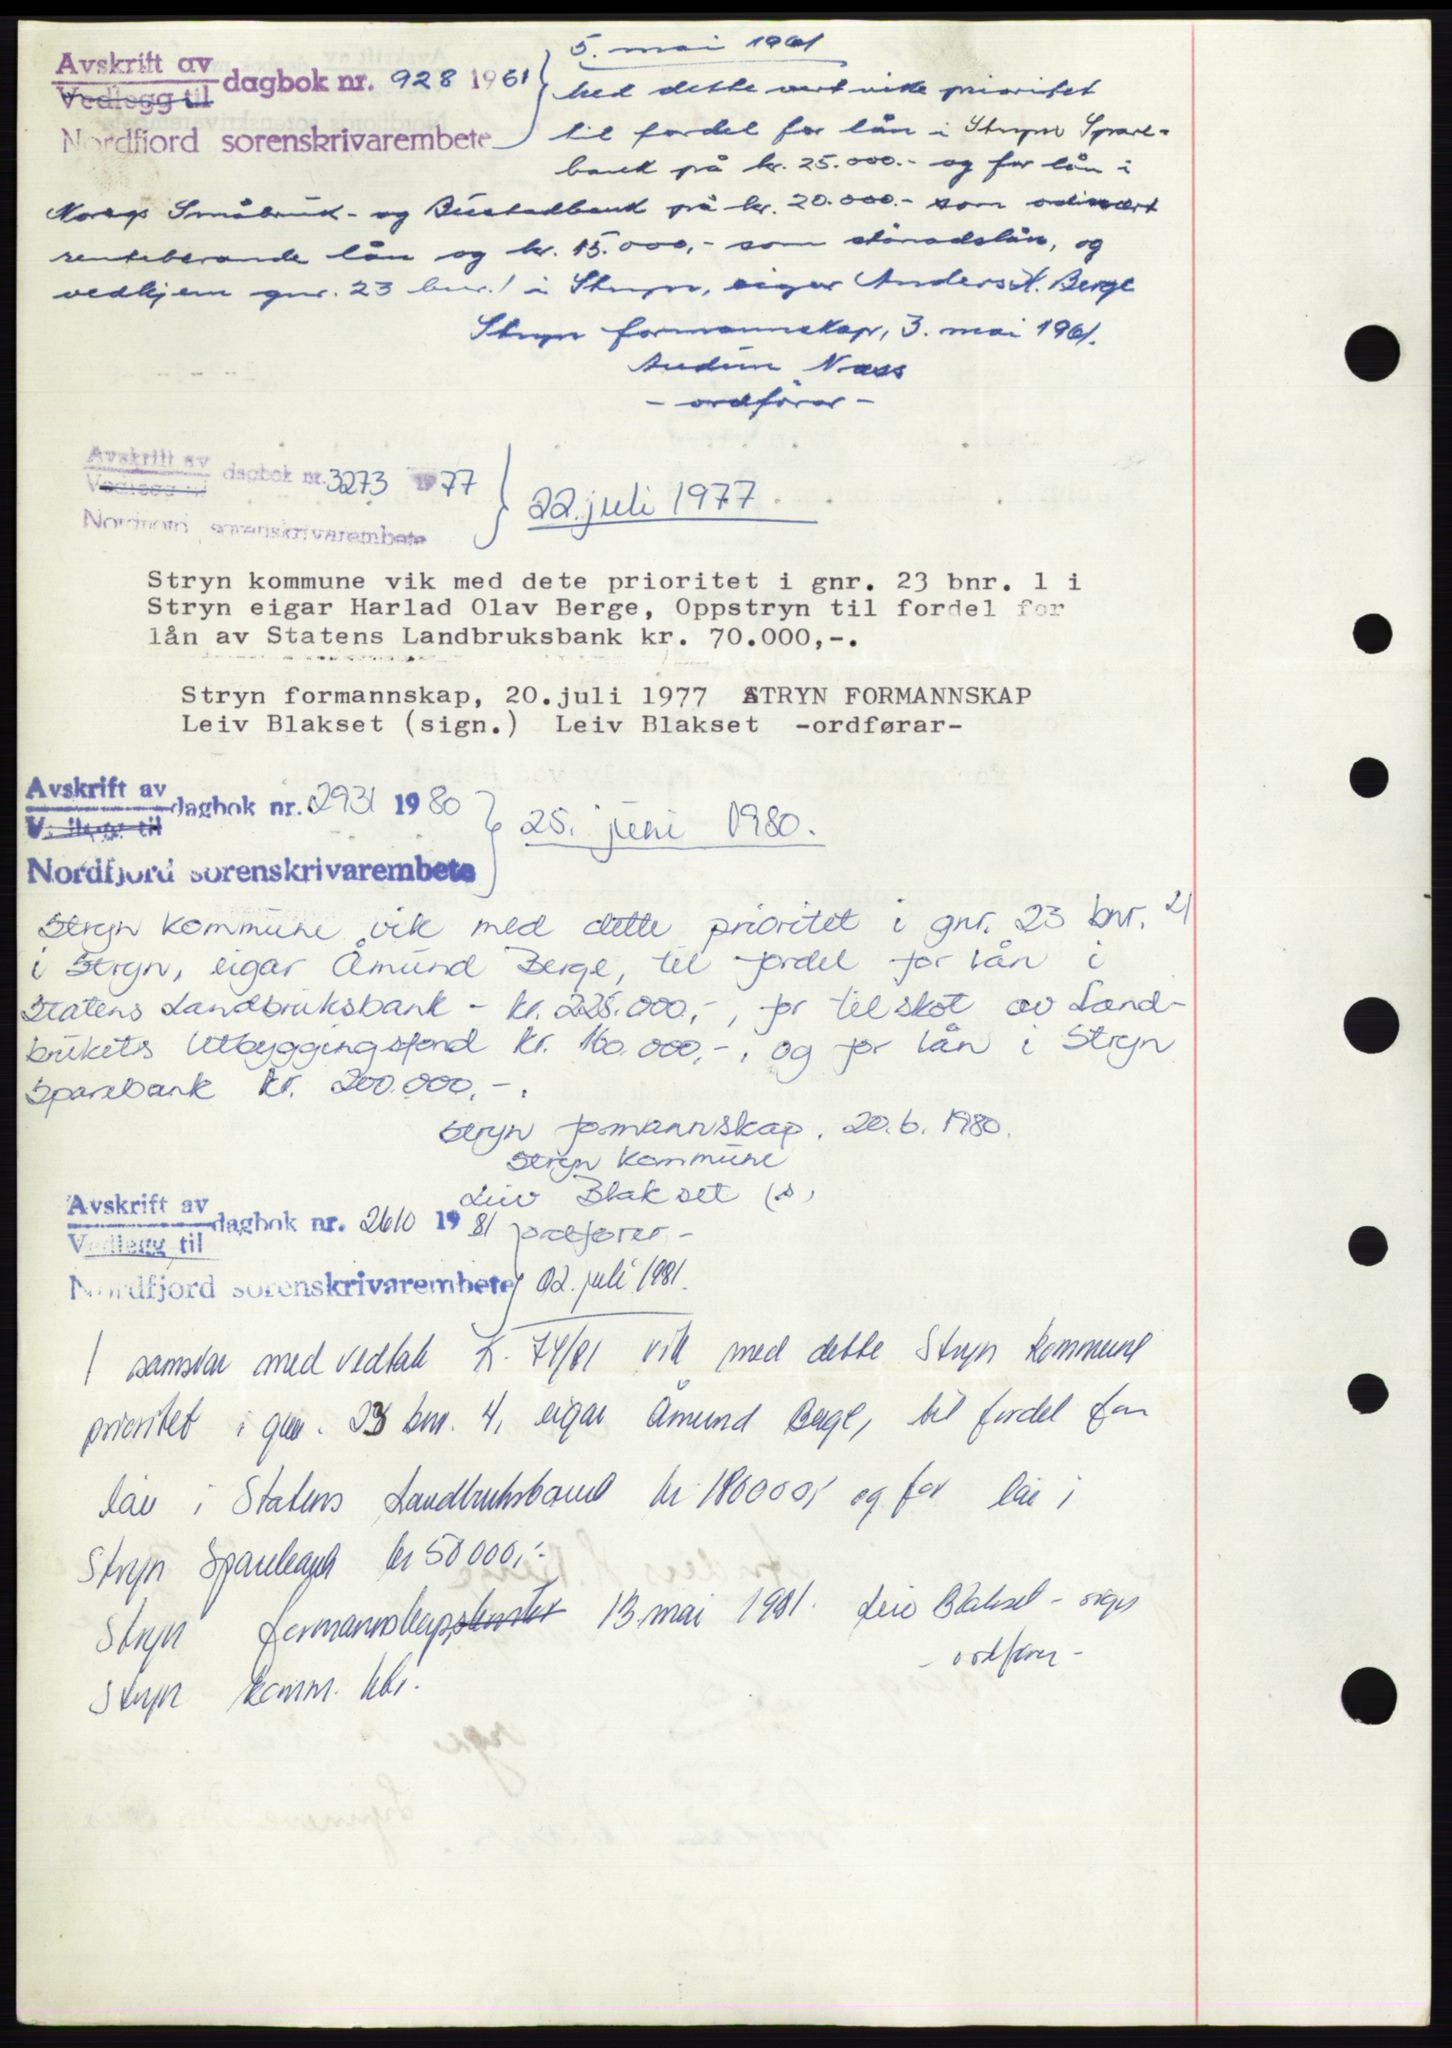 Avskrift av
Vedlegg til
dagbok nr. 928 1961
Nordfjord sorenskrivarembete
5. mai 1961
Med dette vert vike prioritet
til fordel for lån i Stryn Spare-
bank på kr. 25.000.- og for lån i
Noregs Småbruk- og Bustadbank på kr. 20.000.- som ordinært
renteberande lån og kr. 15.000,- som stønadslån, og
vedkjem gnr. 23 bnr. 1 i Stryn, eigar Anders H. Berge
Stryn formannskap, 3. mai 1961.
Audun Næss
- ordførar -
Avskrift av
Vedlegg til
dagbok nr. 3273 1977
Nordfjord sorenskrivarembete
22. juli 1977
Stryn kommune vik med dete prioritet i gnr. 23 bnr. 1 i
Stryn eigar Harlad Olav Berge, Oppstryn til fordel for
lån av Statens Landbruksbank kr. 70.000,-.
Stryn formannskap, 20.juli 1977 STRYN FORMANNSKAP
Leiv Blakset (sign.) Leiv Blakset -ordførar-
Avskrift av
Vedlegg til
dagbok nr. 2931 1980
Nordfjord sorenskrivarembete
25. juni 1980.
Stryn kommune vik med dette prioritet i gnr. 23 bnr. 21
i Stryn, eigar Åmund Berge, til fordel for lån i
Statens Landbruksbank - kr. 225.000,-, for tilskot av Land-
brukets Utbyggingsfond kr. 160.000,-, og for lån i Stryn
Sparebank kr. 200.000,-.
Stryn formannskap, 20.6.1980.
Stryn kommune
Leiv Blakset (s)
ordfører -
Avskrift av
Vedlegg til
dagbok nr. 2610 1981
Nordfjord sorenskrivarembete
02. juli 1981.
I samsvar med vedtak K. 74/81 vik med dette Stryn kommune
prioritet i gnr. 23 bnr. 4, eigar Åmund Berge, til fordel for
lån i Statens Landbruksbank kr 180000,- og for lån i
Stryn Sparebank kr 50000,-.
Stryn formannskap, 13. mai 1981. Leiv Blakset - sign
- ordfører -
Stryn komm. kkr.